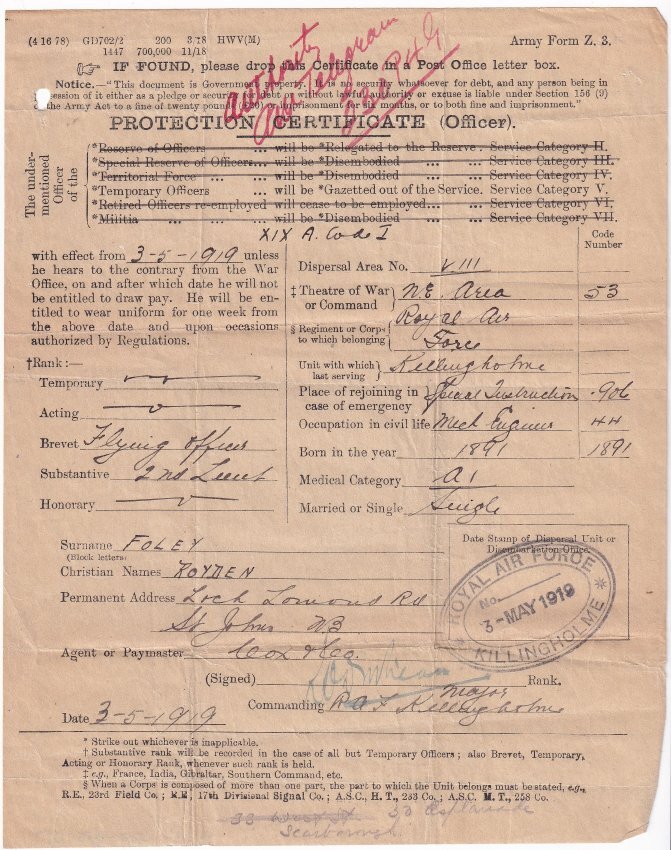 (4 16 78) GD702/2 200 3/18 HWV(M)
1447 700,000 11/18
Army Form Z. 3.
Authority
Telegram
IF FOUND, please drop this Certificate in a Post Office letter box.
Notice.—"This document is Government Property. It is no security whatsoever for debt, and any person being in
possession of it either as a pledge or security for debt or without lawful authority or excuse is liable under Section 156 (9)
of the Army Act to a fine of twenty pounds (£20) or imprisonment for six months, or to both fine and imprisonment."
PROTECTION CERTIFICATE (Officer).
The under-mentioned Officer of the
*Reserve of Officers ... will be *Relegated to the Reserve. Service Category H.
*Special Reserve of Officers... will be *Disembodied ... ... Service Category III.
*Territorial Force ... ... will be *Disembodied ... ... Service Category IV.
*Temporary Officers ... will be *Gazetted out of the Service. Service Category V.
*Retired Officers re-employed will cease to be employed... ... Service Category VI.
*Militia ... ... ... will be *Disembodied ... ... Service Category VII.
XIX A. Code I
with effect from 3-5-1919 unless
he hears to the contrary from the War
Office, on and after which date he will not
be entitled to draw pay. He will be en-
titled to wear uniform for one week from
the above date and upon occasions
authorized by Regulations.
†Rank:—
Temporary
Acting
Brevet Flying Officer
Substantive 2nd Lieut
Honorary
Code Number
Dispersal Area No. VIII
‡ Theatre of War or Command N.E. Area 53
§ Regiment or Corps to which belonging Royal Air Force
Unit with which last serving Killingholme
Place of rejoining in case of emergency Special Instruction 906
Occupation in civil life Mech Engineer 44
Born in the year 1891 1891
Medical Category A1
Married or Single Single
Surname FOLEY
(Block letters)
Christian Names ROYDEN
Permanent Address Loch Lomond Rd
St Johns NB
Agent or Paymaster Cox & Co.
Date Stamp of Dispersal Unit or
Disembarkation Office.
ROYAL AIR FORCE
No.
3-MAY 1919
KILLINGHOLME
(Signed) Rank.
Major
Commanding RAF Killingholme
Date 3-5-1919
* Strike out whichever is inapplicable.
† Substantive rank will be recorded in the case of all but Temporary Officers; also Brevet, Temporary,
Acting or Honorary Rank, whenever such rank is held.
‡ e.g., France, India, Gibraltar, Southern Command, etc.
§ When a Corps is composed of more than one part, the part to which the Unit belongs must be stated, e.g.,
R.E., 23rd Field Co.; R.E., 17th Divisional Signal Co.; A.S.C., H.T., 233 Co.; A.S.C. M.T., 258 Co.
33 Esplanade
Scarborough